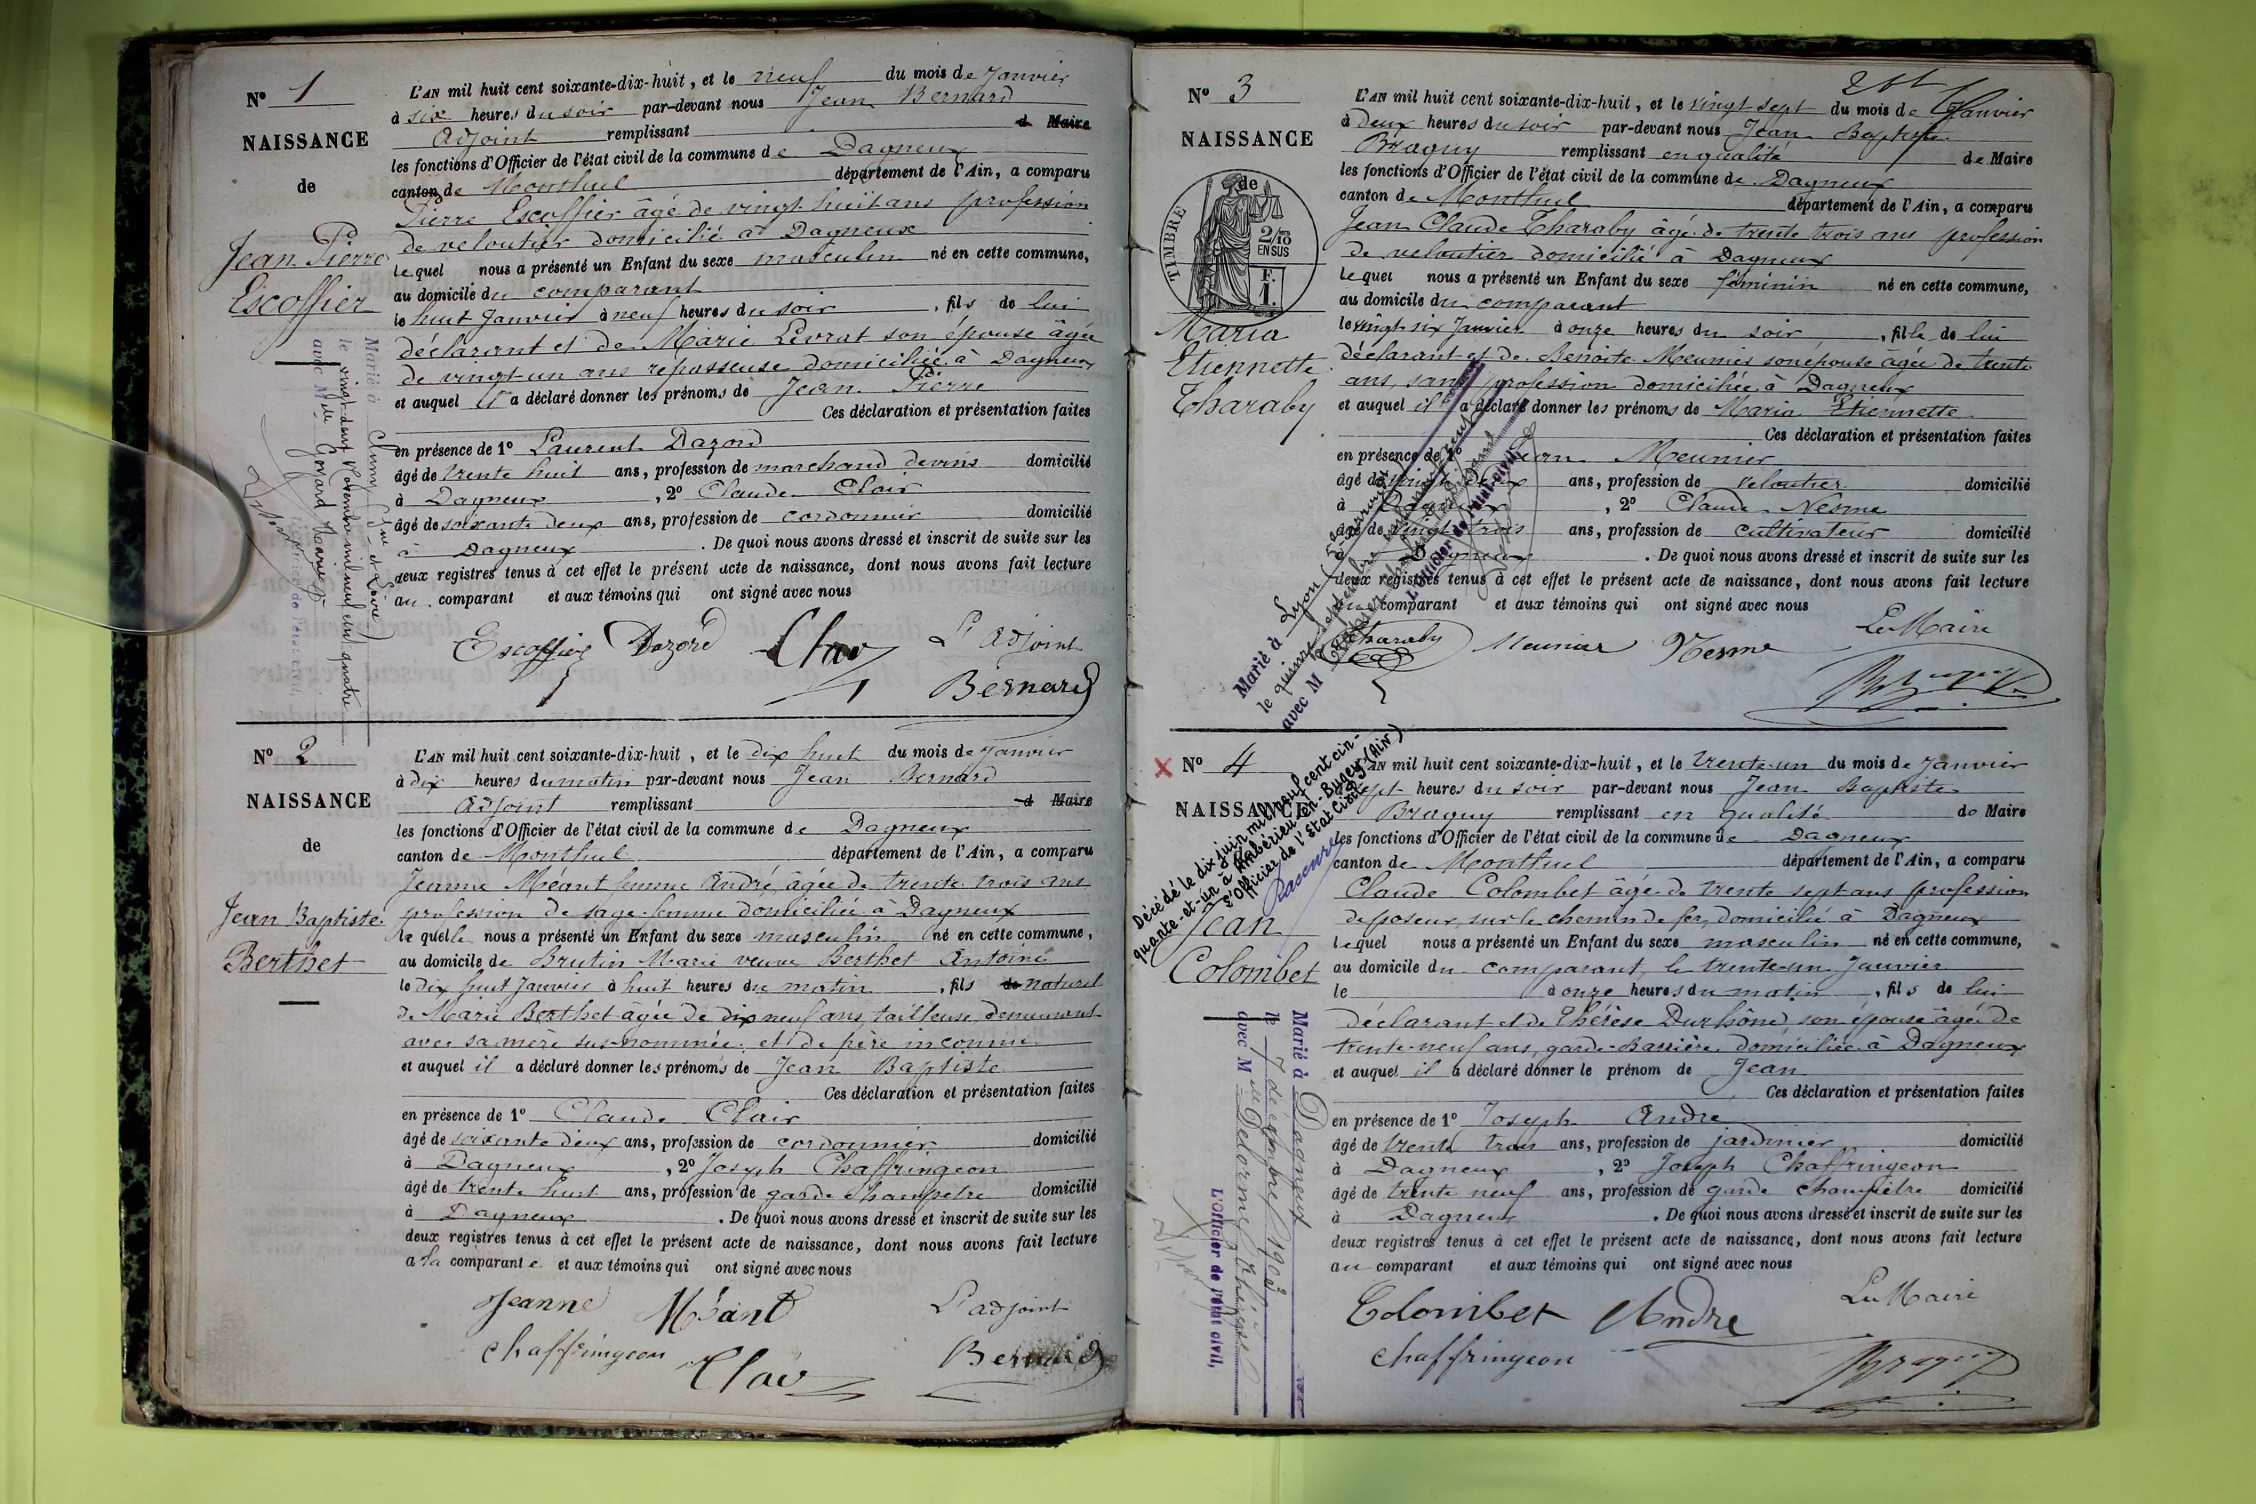 N° 1
NAISSANCE
de
Jean Pierre
Escoffier
L'AN mil huit cent soixante-dix-huit, et le neuf du mois de Janvier
à six heures du soir par-devant nous Jean Bernard
Adjoint remplissant d Maire
les fonctions d'Officier de l'état civil de la commune de Dagneux
canton de Montluel département de l'Ain, a comparu
Pierre Escoffier âgé de vingt huit ans profession
de veloutier domicilié à Dagneux
lequel nous a présenté un Enfant du sexe masculin né en cette commune,
au domicile du comparant
le huit Janvier à neuf heures du soir, fils de lui
déclarant et de Marie Levrat son épouse âgée
de vingt un ans repasseuse domiciliée à Dagneux
et auquel il a déclaré donner les prénoms de Jean Pierre
Ces déclaration et présentation faites
en présence de 1° Laurent Dazord
âgé de trente huit ans, profession de marchand de vins domicilié
à Dagneux, 2° Claude Clair
âgé de soixante deux ans, profession de cordonnier domicilié
à Dagneux. De quoi nous avons dressé et inscrit de suite sur les
deux registres tenus à cet effet le présent acte de naissance, dont nous avons fait lecture
au comparant et aux témoins qui ont signé avec nous
Escoffier Dazord Clair L'adjoint
Bernard
Marié à Cluny (Sne et Loire)
le vingt-deux Novembre mil neuf cent quatre
avec Melle Govard
N° 2
NAISSANCE
de
Jean Baptiste
Berthet
L'AN mil huit cent soixante-dix-huit, et le dix huit du mois de Janvier
à dix heures du matin par-devant nous Jean Bernard
Adjoint remplissant d Maire
les fonctions d'Officier de l'état civil de la commune de Dagneux
canton de Montluel département de l'Ain, a comparu
Jeanne Méant femme André, âgée de trente trois ans
profession de sage-femme domiciliée à Dagneux
laquelle nous a présenté un Enfant du sexe masculin né en cette commune,
au domicile de Brutin Marie veuve Berthet Antoine
le dix huit Janvier à huit heures du matin, fils de naturel
de Marie Berthet âgée de dix neuf ans, tailleuse, demeurant
avec sa mère sus-nommée, et de père inconnu
et auquel il a déclaré donner les prénoms de Jean Baptiste
Ces déclaration et présentation faites
en présence de 1° Claude Clair
âgé de soixante deux ans, profession de cordonnier domicilié
à Dagneux, 2° Joseph Chaffringeon
âgé de trente huit ans, profession de garde champêtre domicilié
à Dagneux. De quoi nous avons dressé et inscrit de suite sur les
deux registres tenus à cet effet le présent acte de naissance, dont nous avons fait lecture
a la comparante et aux témoins qui ont signé avec nous
Jeanne Méant L'adjoint
Chaffringeon Clair Bernard
N° 3
NAISSANCE
de
TIMBRE
2/10
EN SUS
F.
1.
Maria
Etiennette
Tharaby
L'AN mil huit cent soixante-dix-huit, et le vingt sept du mois de Janvier
à deux heures du soir par-devant nous Jean Baptiste
Braguy remplissant en qualité de Maire
les fonctions d'Officier de l'état civil de la commune de Dagneux
canton de Montluel département de l'Ain, a comparu
Jean Claude Tharaby âgé de trente trois ans profession
de veloutier domicilié à Dagneux
lequel nous a présenté un Enfant du sexe féminin né en cette commune,
au domicile du comparant
le vingt-six Janvier à onze heures du soir, fille de lui
déclarant et de Benoite Meunier son épouse âgée de trente
ans, sans profession domiciliée à Dagneux
et auquel il a déclaré donner les prénoms de Maria Etiennette
Ces déclaration et présentation faites
en présence de 1° Jean Meunier
âgé de vingt deux ans, profession de veloutier domicilié
à Dagneux, 2° Claude Nesme
âgé de vingt trois ans, profession de cultivateur domicilié
à Dagneux. De quoi nous avons dressé et inscrit de suite sur les
deux registres tenus à cet effet le présent acte de naissance, dont nous avons fait lecture
au comparant et aux témoins qui ont signé avec nous
Tharaby Meunier Nesme Le Maire
Braguy
Marié à Lyon
le quinze septembre
avec M
L'Officier de l'état-civil,
N° 4
NAISSANCE
Jean
Colombet
L'AN mil huit cent soixante-dix-huit, et le trente-un du mois de Janvier
à sept heures du soir par-devant nous Jean Baptiste
Braguy remplissant en qualité de Maire
les fonctions d'Officier de l'état civil de la commune de Dagneux
canton de Montluel département de l'Ain, a comparu
Claude Colombet âgé de trente sept ans profession
de poseur sur le chemin de fer, domicilié à Dagneux
lequel nous a présenté un Enfant du sexe masculin né en cette commune,
au domicile du comparant, le trente-un Janvier
le à onze heures du matin, fils de lui
déclarant et de Thérèse Durhône, son épouse âgée de
trente-neuf ans, garde-Barrière, domiciliée à Dagneux
et auquel il a déclaré donner le prénom de Jean
Ces déclaration et présentation faites
en présence de 1° Joseph André
âgé de trente trois ans, profession de jardinier domicilié
à Dagneux, 2° Joseph Chaffringeon
âgé de trente neuf ans, profession de garde champêtre domicilié
à Dagneux. De quoi nous avons dressé et inscrit de suite sur les
deux registres tenus à cet effet le présent acte de naissance, dont nous avons fait lecture
au comparant et aux témoins qui ont signé avec nous
Colombet André Le Maire
Chaffringeon Braguy
Décédé le dix juin mil neuf cent cin-
quante-et-un à Ambérieu-en-Bugey (Ain)
L'Officier de l'Etat Civil
Marié à Dagneux
le 7 décembre 1903
avec M elle Delorme
L'Officier de l'état civil,